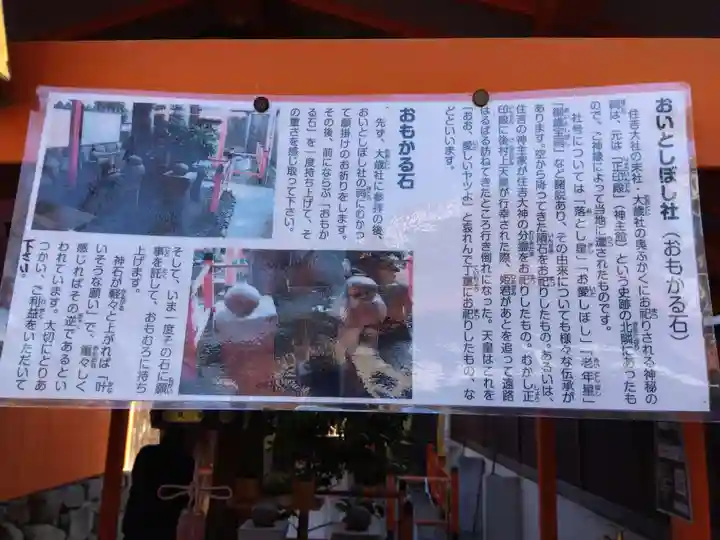 おいとしぼし社(おもかる石)
住吉大社の末社・大歳社の奥ふかくにお祀りされる神秘の
員は、元は「正印殿」(神主館)という史跡の北隣にあったも
ので、ご神縁によって当地に遷されたものです。
社号については「落とし星」「お愛しぼし」「老年星」
「御歳宝司」など諸説あり、その由来についても様々な伝承が
あります。空から降ってきた隕石をお祀りしたもの。あるいは、
住吉の神主家が住吉大神の分霊をお祀りしたもの。むかし正
印殿に後村上天皇が行幸された際、姫君があとを追って遠路
はるばる訪ねてきたところ行き倒れになった。天皇はこれを
「おお、愛しいヤツよ」と哀れんで丁重にお祀りしたもの、な
どといいます。
おもかる石
先ず、大歳社に参拝の後、
おいとしぼし社の祠にむかっ
て願掛けのお祈りをします。
その後、前にならぶ「おもか
る石」を一度持ち上げて、そ
の重さを感じ取って下さい。
そして、いま一度その石に願
事を託して、おもむろに持ち
上げます。
神石が軽々と上がれば「叶
いそうな願い」で、重々しく
感じればその逆であるとい
われています。大切にとりあ
つかい、ご利益をいただいて
下さい。